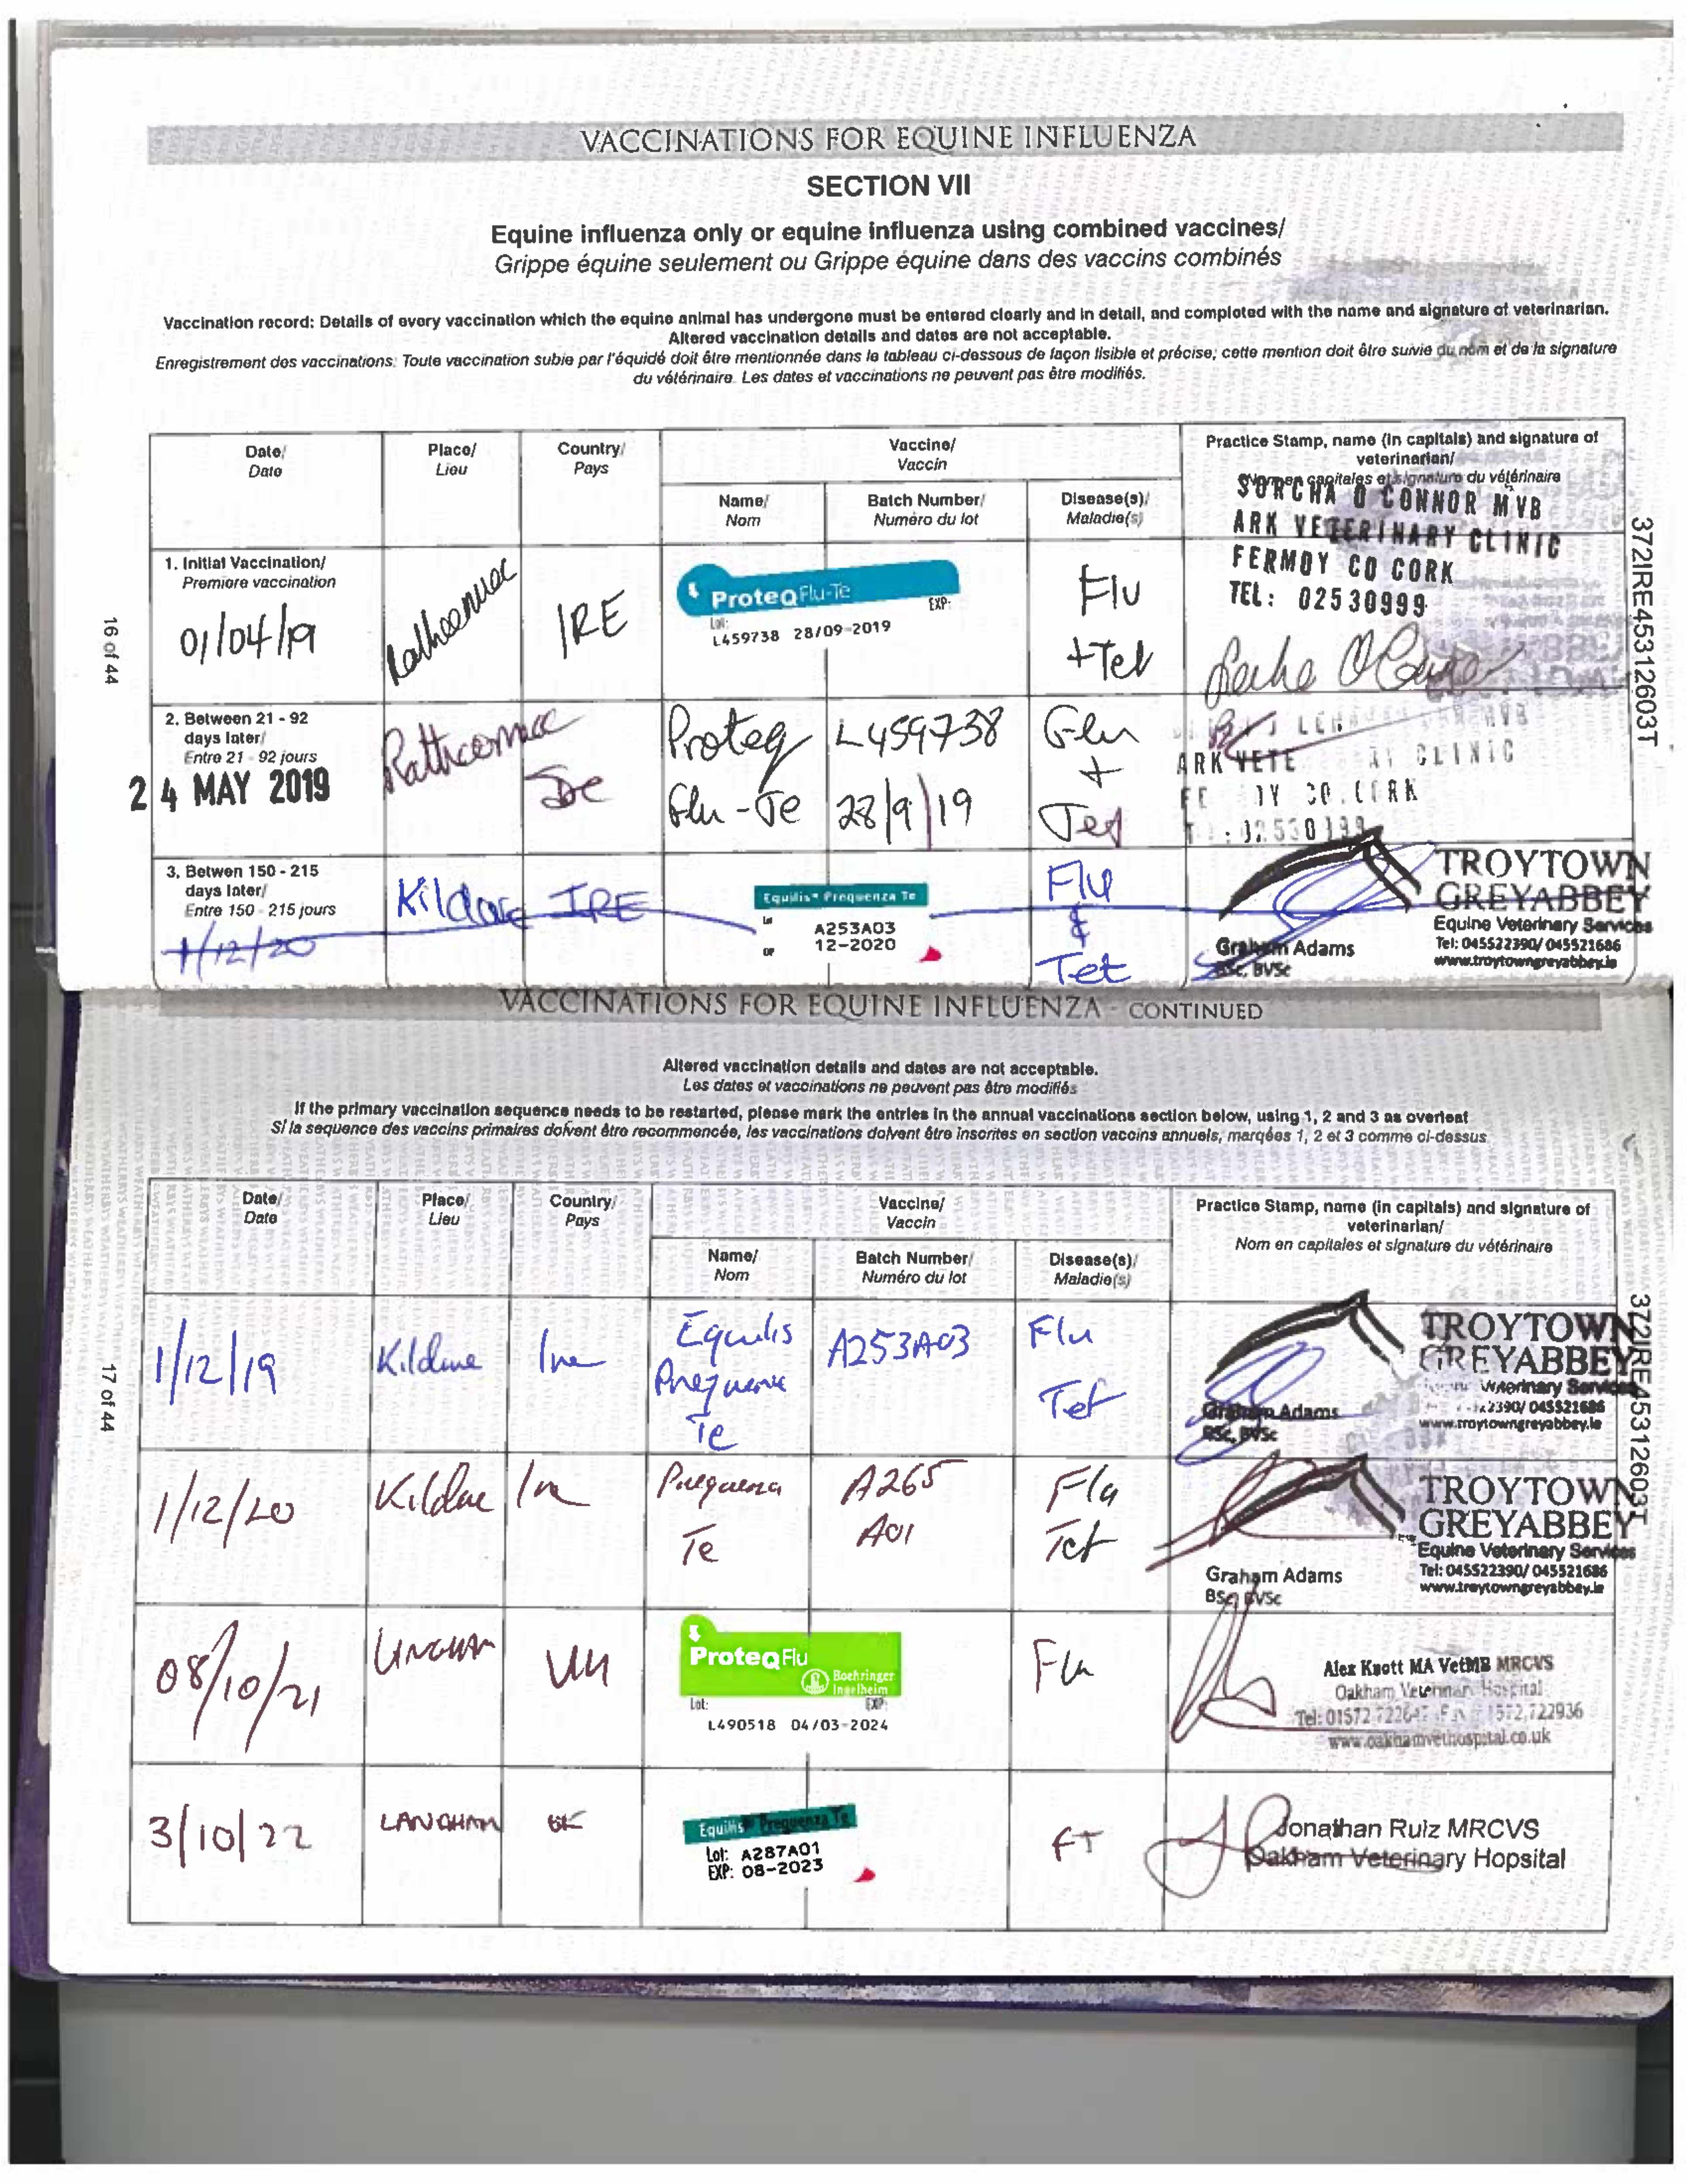 VACCINATIONS FOR EQUINE INFLUENZA
SECTION VII
Equine influenza only or equine influenza using combined vaccines/
Grippe équine seulement ou Grippe équine dans des vaccins combinés
Vaccination record: Details of every vaccination which the equine animal has undergone must be entered clearly and in detail, and completed with the name and signature of veterinarian.
Altered vaccination details and dates are not acceptable.
Enregistrement des vaccinations: Toute vaccination subie par l'équidé doit être mentionnée dans le tableau ci-dessous de façon lisible et précise; cette mention doit être suivie du nom et de la signature
du vétérinaire. Les dates et vaccinations ne peuvent pas être modifiés.
Date/
Date
Place/
Lieu
Country/
Pays
Vaccine/
Vaccin
Name/
Nom
Batch Number/
Numéro du lot
Disease(s)/
Maladie(s)
Practice Stamp, name (in capitals) and signature of
veterinarian/
Nom en capitales et signature du vétérinaire
1. Initial Vaccination/
Premiere vaccination
01/04/19
Rathcormac
IRE
ProteqFlu-Te
Lot:
EXP:
L459738 28/09-2019
Flu
+Tet
SORCHA O CONNOR MVB
ARK VETERINARY CLINIC
FERMOY CO CORK
TEL: 02530999
2. Between 21 - 92
days later/
Entre 21 - 92 jours
24 MAY 2019
Rathcormac
Proteq
Flu-Te
L459738
28/9/19
Flu
+
Tet
ARK VETE
CLINIC
CO. CORK
3. Betwen 150 - 215
days later/
Entre 150 - 215 jours
1/12/20
Kildare IRE
Equilis Prequenza Te
A253A03
12-2020
Flu
&
Tet
TROYTOWN
GREYABBEY
Equine Veterinary Services
Tel: 045522390/ 045521686
www.troytowngreyabbey.ie
Graham Adams
BSc, BVSc
16 of 44
372IRE45312603T
VACCINATIONS FOR EQUINE INFLUENZA - CONTINUED
Altered vaccination details and dates are not acceptable.
Les dates et vaccinations ne peuvent pas être modifiés
If the primary vaccination sequence needs to be restarted, please mark the entries in the annual vaccinations section below, using 1, 2 and 3 as overleaf
Si la sequence des vaccins primaires doivent être recommencée, les vaccinations doivent être inscrites en section vaccins annuels, marqées 1, 2 et 3 comme ci-dessus
Date/
Date
Place/
Lieu
Country/
Pays
Vaccine/
Vaccin
Name/
Nom
Batch Number/
Numéro du lot
Disease(s)/
Maladie(s)
Practice Stamp, name (in capitals) and signature of
veterinarian/
Nom en capitales et signature du vétérinaire
1/12/19
Kildare
Ire
Equilis
Prequenza
Te
A253A03
Flu
Tet
TROYTOWN
GREYABBEY
Veterinary Services
2390/ 045521686
www.troytowngreyabbey.ie
Graham Adams
BSc, BVSc
1/12/20
Kildare
Ire
Prequenza
Te
A265
A01
Flu
Tet
TROYTOWN
GREYABBEY
Equine Veterinary Services
Tel: 045522390/ 045521686
www.troytowngreyabbey.ie
Graham Adams
BSc, BVSc
08/10/21
UK
ProteqFlu
Boehringer
Ingelheim
Lot:
EXP:
L490518 04/03-2024
Flu
Alex Knott MA VetMB MRCVS
Oakham Veterinary Hospital
Tel: 01572 722647 Fax 01572 722936
www.oakhamvethospital.co.uk
3/10/22
LANGHAM
Equilis Prequenza Te
Lot: A287A01
EXP: 08-2023
FT
Jonathan Ruiz MRCVS
Oakham Veterinary Hopsital
17 of 44
372IRE45312603T